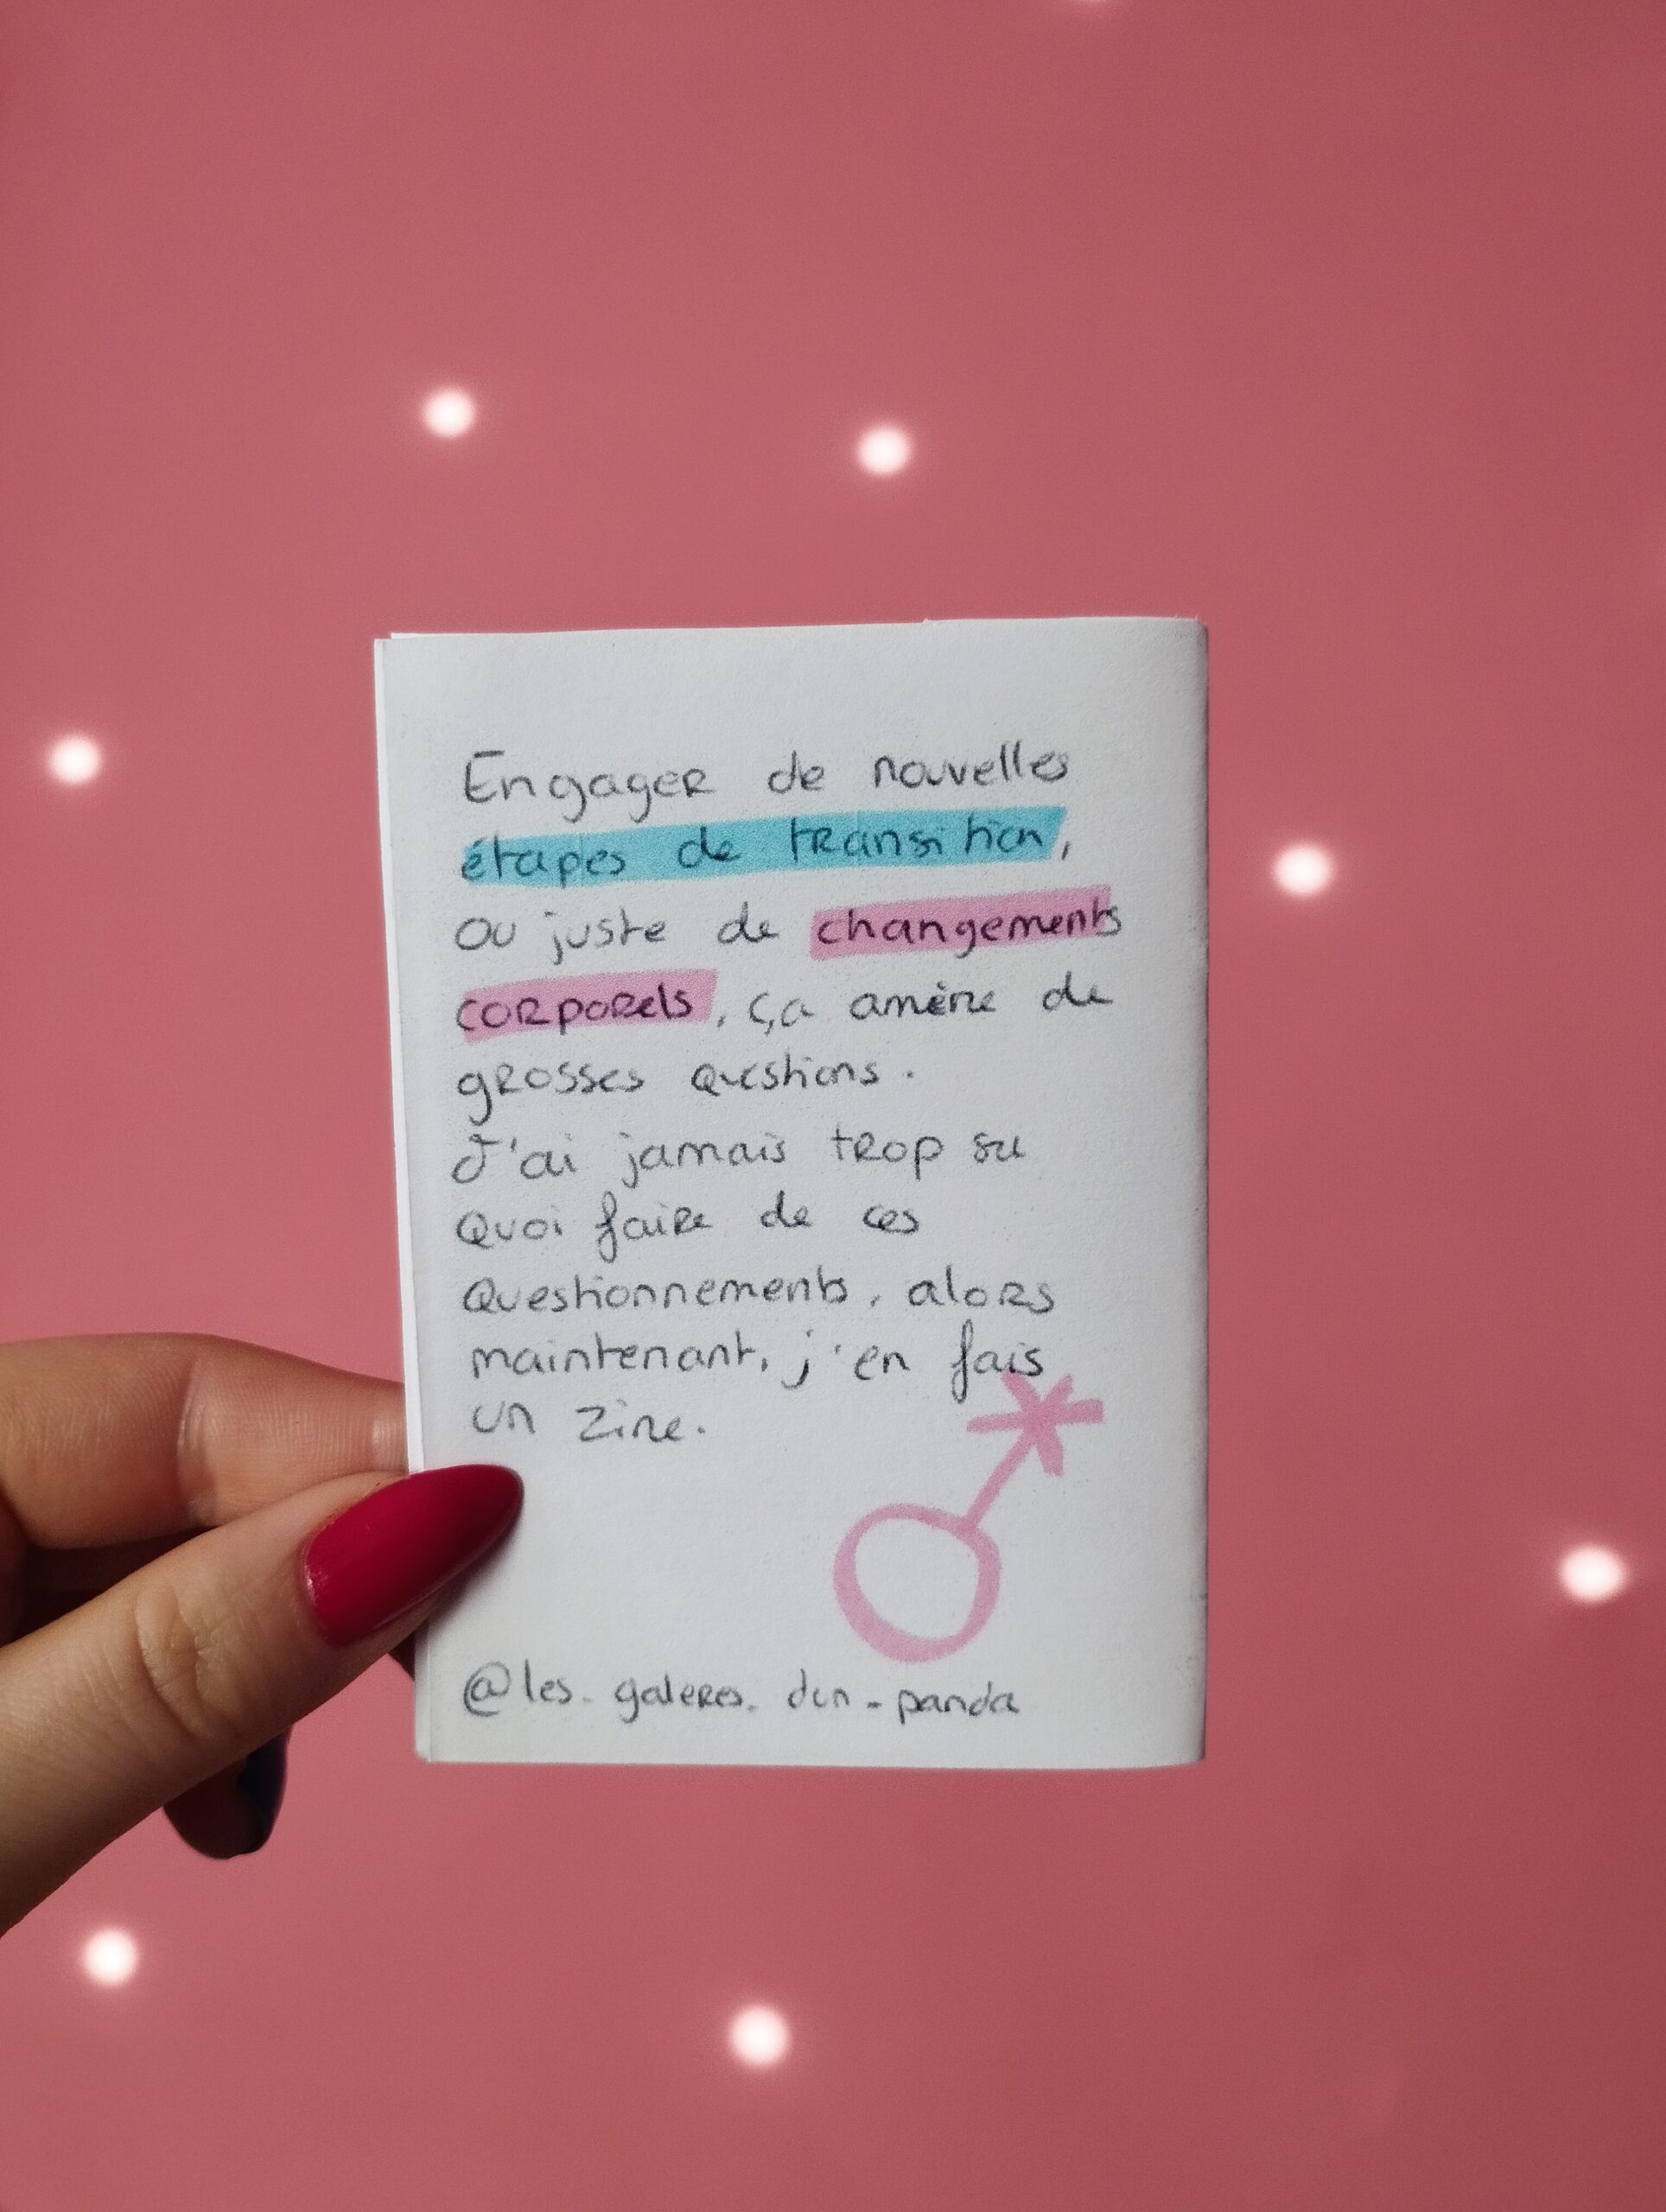 Engager de nouvelles
étapes de transition,
ou juste de changements
corporels, ça amène de
grosses questions.
J'ai jamais trop su
quoi faire de ces
questionnements, alors
maintenant, j'en fais
un zine.
@les_galeres_dun_panda